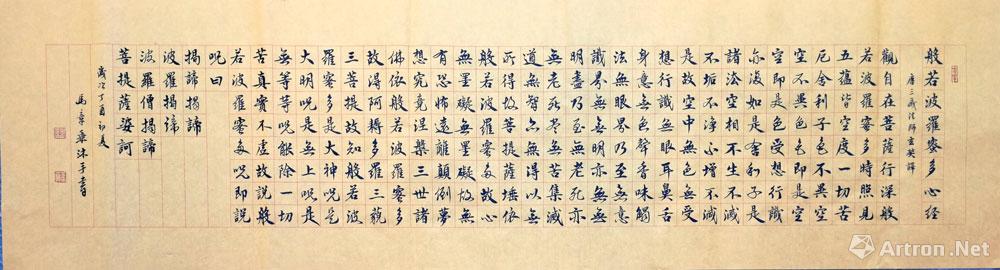 般若波羅蜜多心经
唐三藏法師玄奘譯
觀自在菩薩行深般
若波羅蜜多時照見
五蘊皆空度一切苦
厄舍利子色不異空
空不異色色即是空
空即是色受想行識
亦復如是舍利子是
諸法空相不生不滅
不垢不淨不增不減
是故空中無色無受
想行識無眼耳鼻舌
身意無色聲香味觸
法無眼界乃至無意
識界無無明亦無無
明盡乃至無老死亦
無老死盡無苦集滅
道無智亦無得以無
所得故菩提薩埵依
般若波羅蜜多故心
無罣礙無罣礙故無
有恐怖遠離顛倒夢
想究竟涅槃三世諸
佛依般若波羅蜜多
故得阿耨多羅三藐
三菩提故知般若波
羅蜜多是大神呪是
大明呪是無上呪是
無等等呪能除一切
苦真實不虛故說般
若波羅蜜多呪即說
呪曰
揭諦揭諦
波羅揭諦
波羅僧揭諦
菩提薩婆訶
歲次丁酉初夏
馬章乘沐手書
雅昌艺术网
Artron.Net